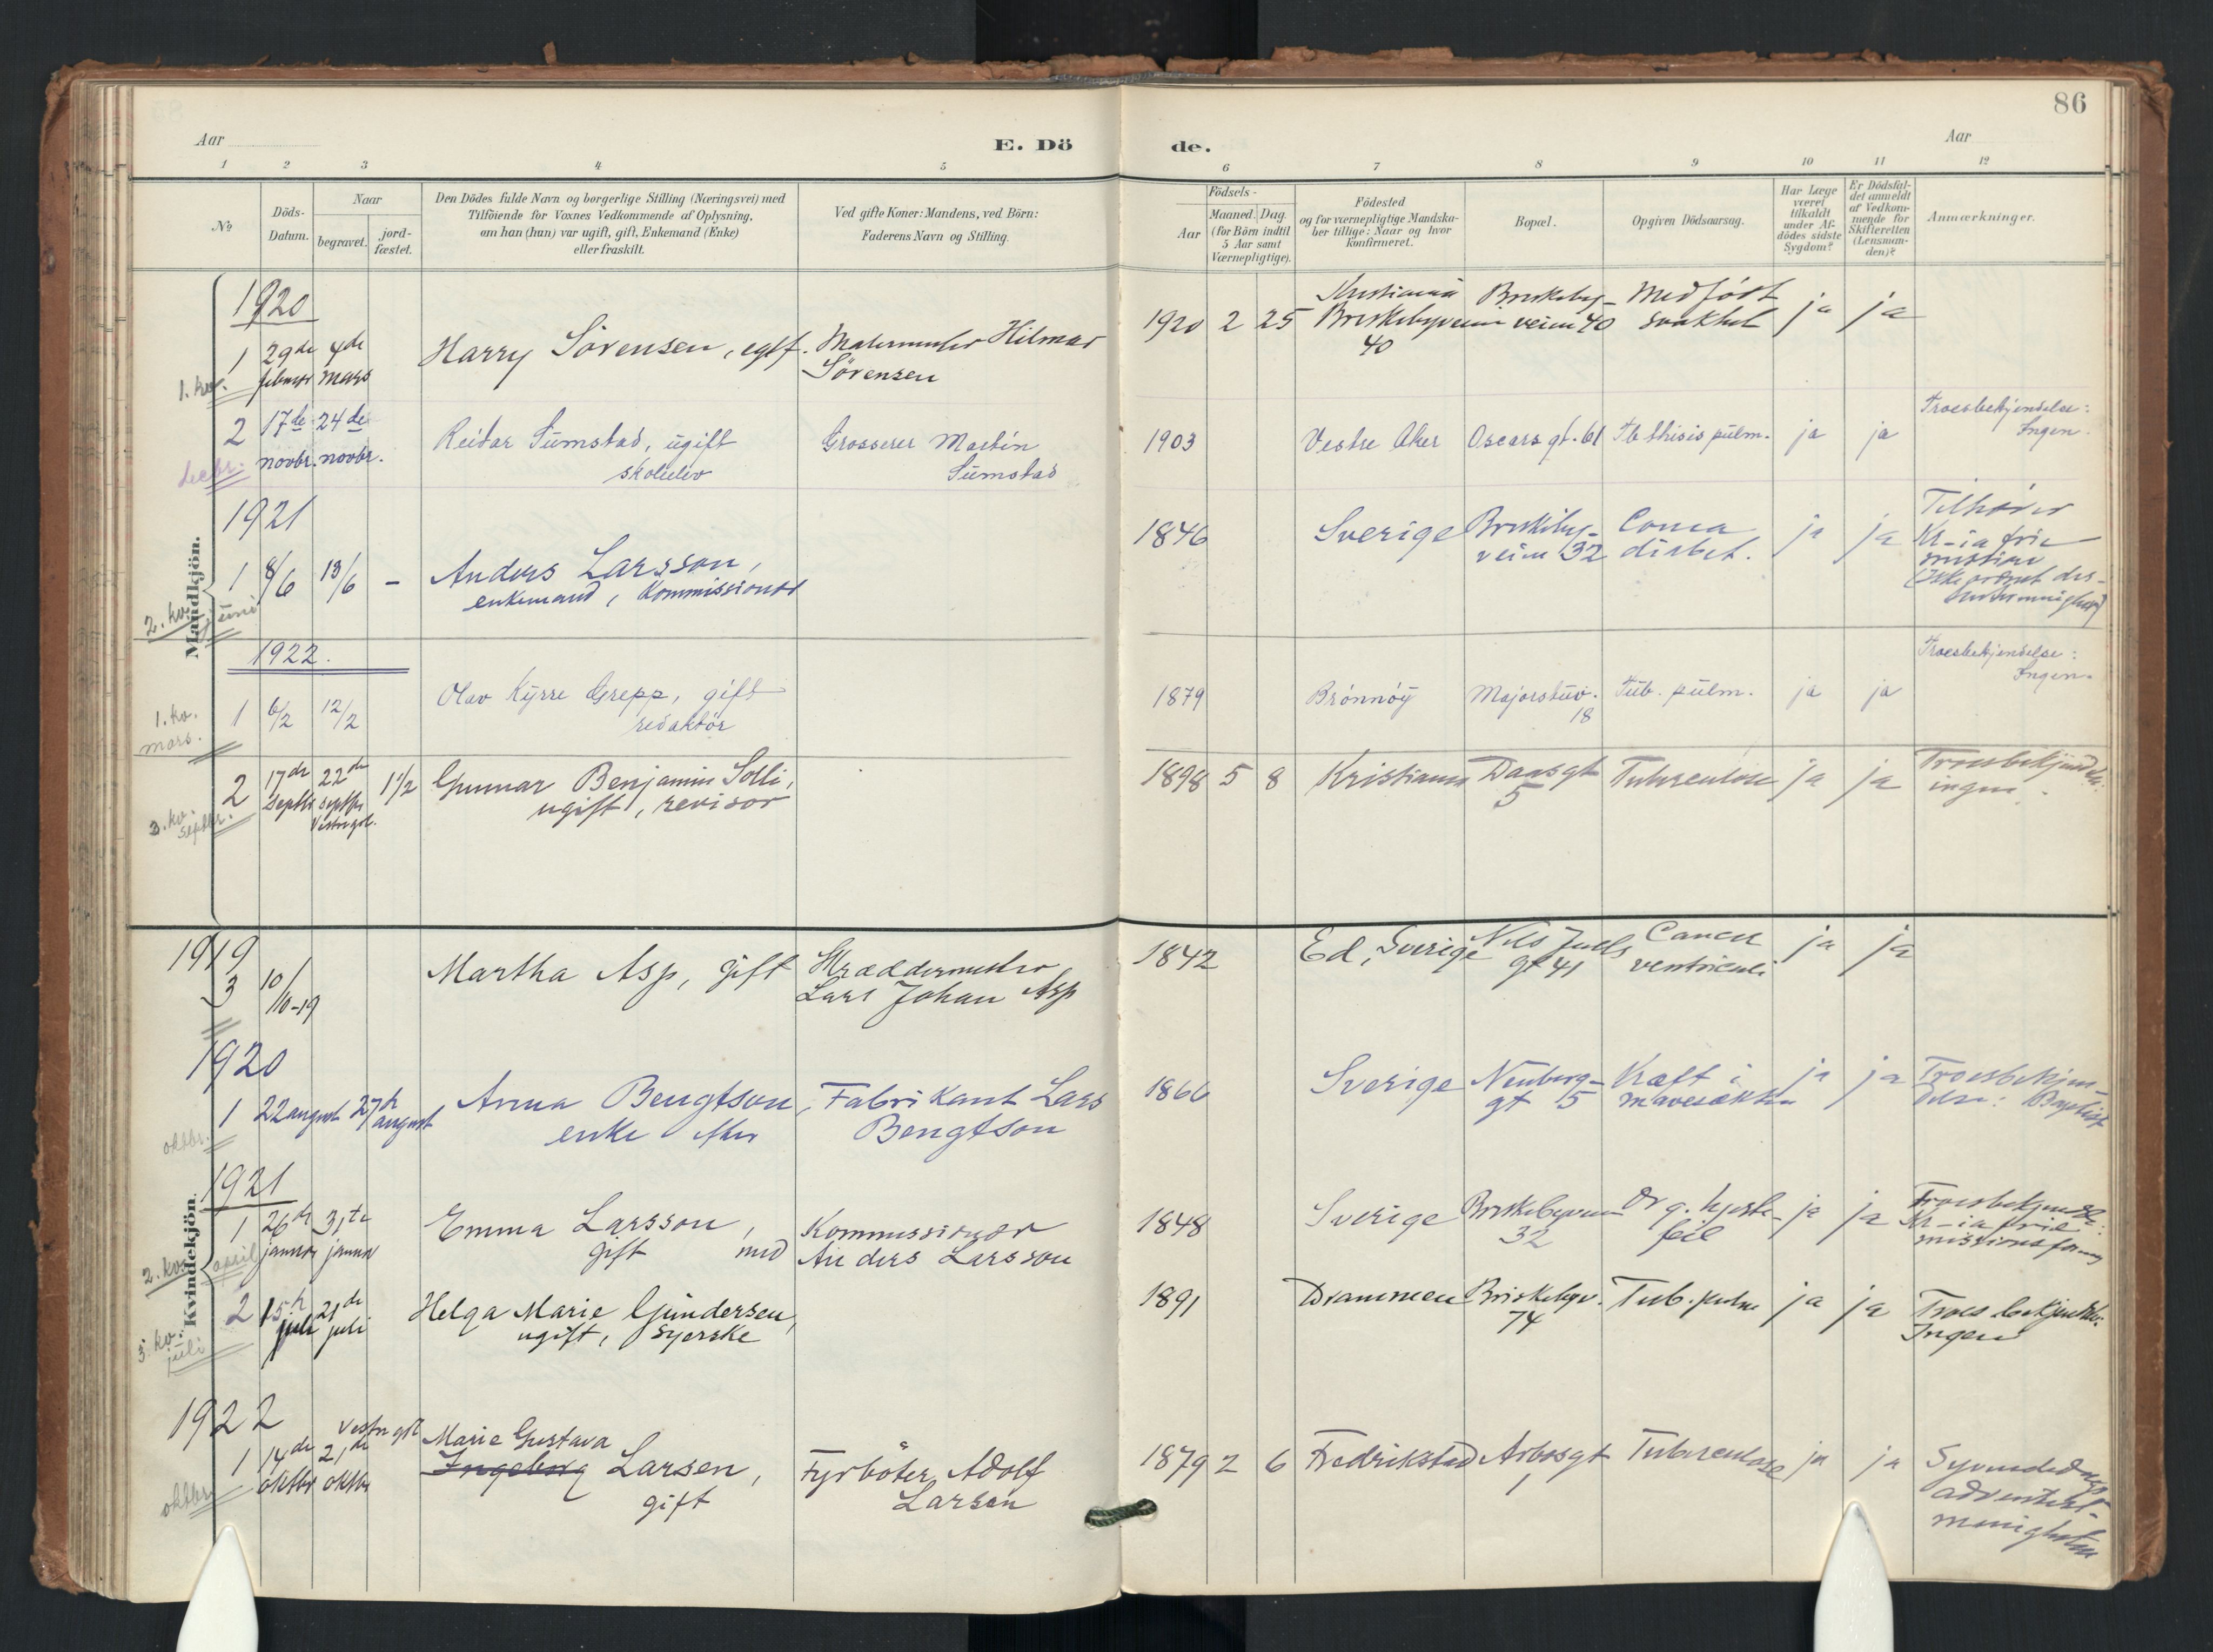 86
Aar
E. Dö
de.
Aar
1 2 3 4 5 6 7 8 9 10 11 12
No
Döds-
Datum.
Naar
begravet.
jord-
fæstet.
Den Dödes fulde Navn og borgerlige Stilling (Næringsvei) med
Tilföiende for Voxnes Vedkommende af Oplysning,
om han (hun) var ugift, gift, Enkemand (Enke)
eller fraskilt.
Ved gifte Koner: Mandens, ved Börn:
Faderens Navn og Stilling.
Födsels-
Aar
Maaned. Dag.
(for Börn indtil
5 Aar samt
Værnepligtige).
Födested
og for værnepligtige Mandska-
ber tillige: Naar og hvor
konfirmeret.
Bopæl.
Opgiven Dödsaarsag.
Har Læge
været
tilkaldt
under Af-
dödes sidste
Sygdom?
Er Dödsfal-
det anmeldt
af Vedkom-
mende for
Skifteretten
(Lensman-
den)?
Anmærkninger.
Mandkjön.
1920
1 29de 4de Harry Sörensen, egtf. Malermester Hilmar 1920 2 25 Kristiania Briskeby- Medfödt ja ja
1. kv. februar mars Sörensen Briskebyveien veien 40 svakhet
40
2 17de 24de Reidar Sumstad, ugift Grosserer Martin 1903 Vestre Aker Oscars gt. 61 Tb. thisis pulm. ja ja Troesbekjendelse:
decbr. novbr. novbr. skoleelev Sumstad Ingen.
1921
1 8/6 13/6 - Anders Larsson, 1846 Sverige Briskeby- Coma ja ja Tilhører
2. kv. juni enkemand, Kommissionær veien 32 diabet. Kr-ia frie
mission
(Ikke ordnet dis-
sentermenighet)
1922.
1. kv. 1 6/2 12/2 Olav Kyrre Grepp, gift 1879 Brønnøy Majorstuv. Tub. pulm. ja ja Troesbekjendelse:
mars. redaktör 18 Ingen.
2 17de 22de 1 1/2 Gunnar Benjamin Solli, 1898 5 8 Kristiania Daasgt Tuberculose ja ja Troesbekjendelse:
3. kv. septbr. septbr septbr ugift, revisor 5 ingen.
Vestre grl.
Kvindekjön.
1919
3 10/10-19 Martha Asp, gift Skræddermester 1842 Ed, Sverige Nils Juels Cancer ja ja
Lars Johan Asp gt 41 ventriculi
1920
1 22 august 27de Anna Bengtson, Fabrikant Lars 1866 Sverige Neuberg- Kræft i ja ja Troesbekjen-
oktbr. august enke efter Bengtson gt 15 mavesækken delse: Baptist
1921
1 26de 31te Emma Larsson, Kommissionær 1848 Sverige Briskebyveien Org. hjerte- ja ja Troesbekjendelse:
2. kv. april januar januar gift med Anders Larsson 32 feil Kr-ia frie
missionsforening
2 15de 21de Helga Marie Gundersen, 1891 Drammen Briskebyv. Tub. pulm ja ja Troesbekjendelse:
3. kv. juli juli juli ugift, syerske 74 Ingen
1922
Vestre grl. Marie Gustava
1 14de 21de Ingeborg Larsen, Fyrböter Adolf 1879 2 6 Fredrikstad Arbosgt Tuberculose ja ja Syvendedags
oktbr. oktbr oktbr gift Larsen 1 adventist-
menigheten